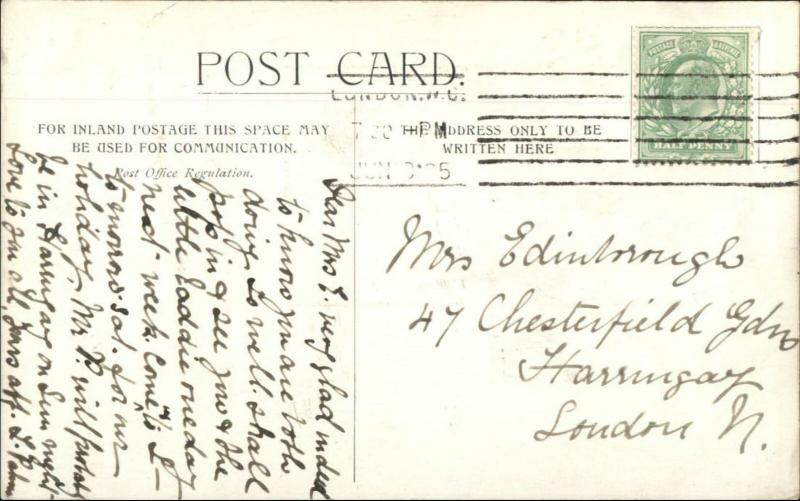 POST CARD.
FOR INLAND POSTAGE THIS SPACE MAY
BE USED FOR COMMUNICATION.
Post Office Regulation.
THE ADDRESS ONLY TO BE
WRITTEN HERE
LONDON. N.C.
7.30 PM
JUN 05
POSTAGE REVENUE
HALF PENNY
Dear Mrs E. very glad indeed
to know you are both
doing so well. shall
pop in & see you & the
little laddie one day
next week. Come to
to-morrow Sat. for our
holiday, Mr P. will probably
be in Harringay on Sun night
Love to you all Yours aff
Mrs Edinborough
47 Chesterfield Gdns
Harringay
London N.